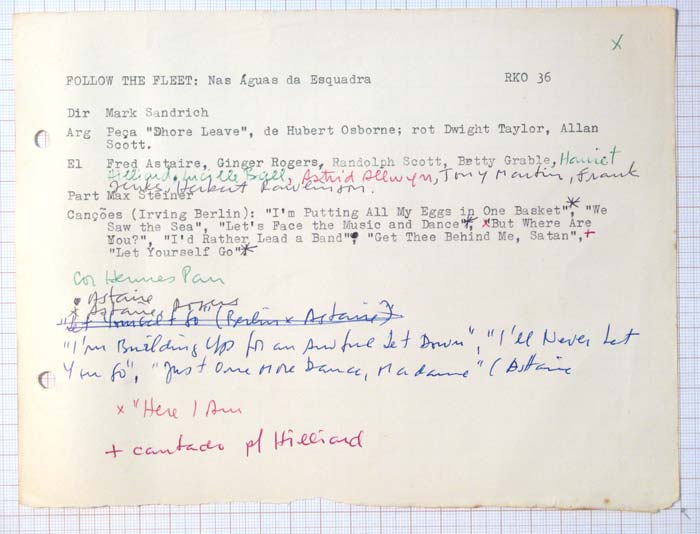 x
FOLLOW THE FLEET: Nas Águas da Esquadra RKO 36
Dir Mark Sandrich
Arg Peça "Shore Leave", de Hubert Osborne; rot Dwight Taylor, Allan
Scott.
El Fred Astaire, Ginger Rogers, Randolph Scott, Betty Grable, Harriet
Hilliard, Lucille Ball, Astrid Allwyn, Tony Martin, Frank
Jenks, Herbert Rawlinson.
Part Max Steiner
Canções (Irving Berlin): "I'm Putting All My Eggs in One Basket",* "We
Saw the Sea", "Let's Face the Music and Dance"*, x"But Where Are
You?", "I'd Rather Lead a Band"• "Get Thee Behind Me, Satan",+
"Let Yourself Go"*
Cor Hermes Pan
• Astaire
* Astaire, Rogers
"Let Yourself Go" (Berlin x Astaire)
"I'm Building Up for an Awful Let Down", "I'll Never Let
You Go", "Just One More Dance, Madame" (Astaire
x "Here I Am
+ cantado p/ Hilliard